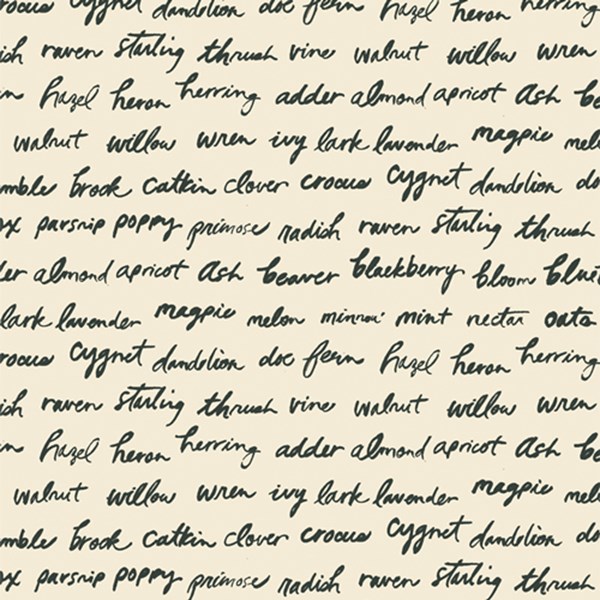 crocus cygnet dandelion doe fern hazel heron herring
raven starling thrush vine walnut willow wren
hazel heron herring adder almond apricot ash
walnut willow wren ivy lark lavender magpie
brook catkin clover crocus cygnet dandelion
parsnip poppy primose radish raven starling thrush
almond apricot ash beaver blackberry bloom
lark lavender magpie melon minnow mint nectar oats
crocus cygnet dandelion doe fern hazel heron herring
raven starling thrush vine walnut willow wren
hazel heron herring adder almond apricot ash
walnut willow wren ivy lark lavender magpie
brook catkin clover crocus cygnet dandelion
parsnip poppy primose radish raven starling thrush